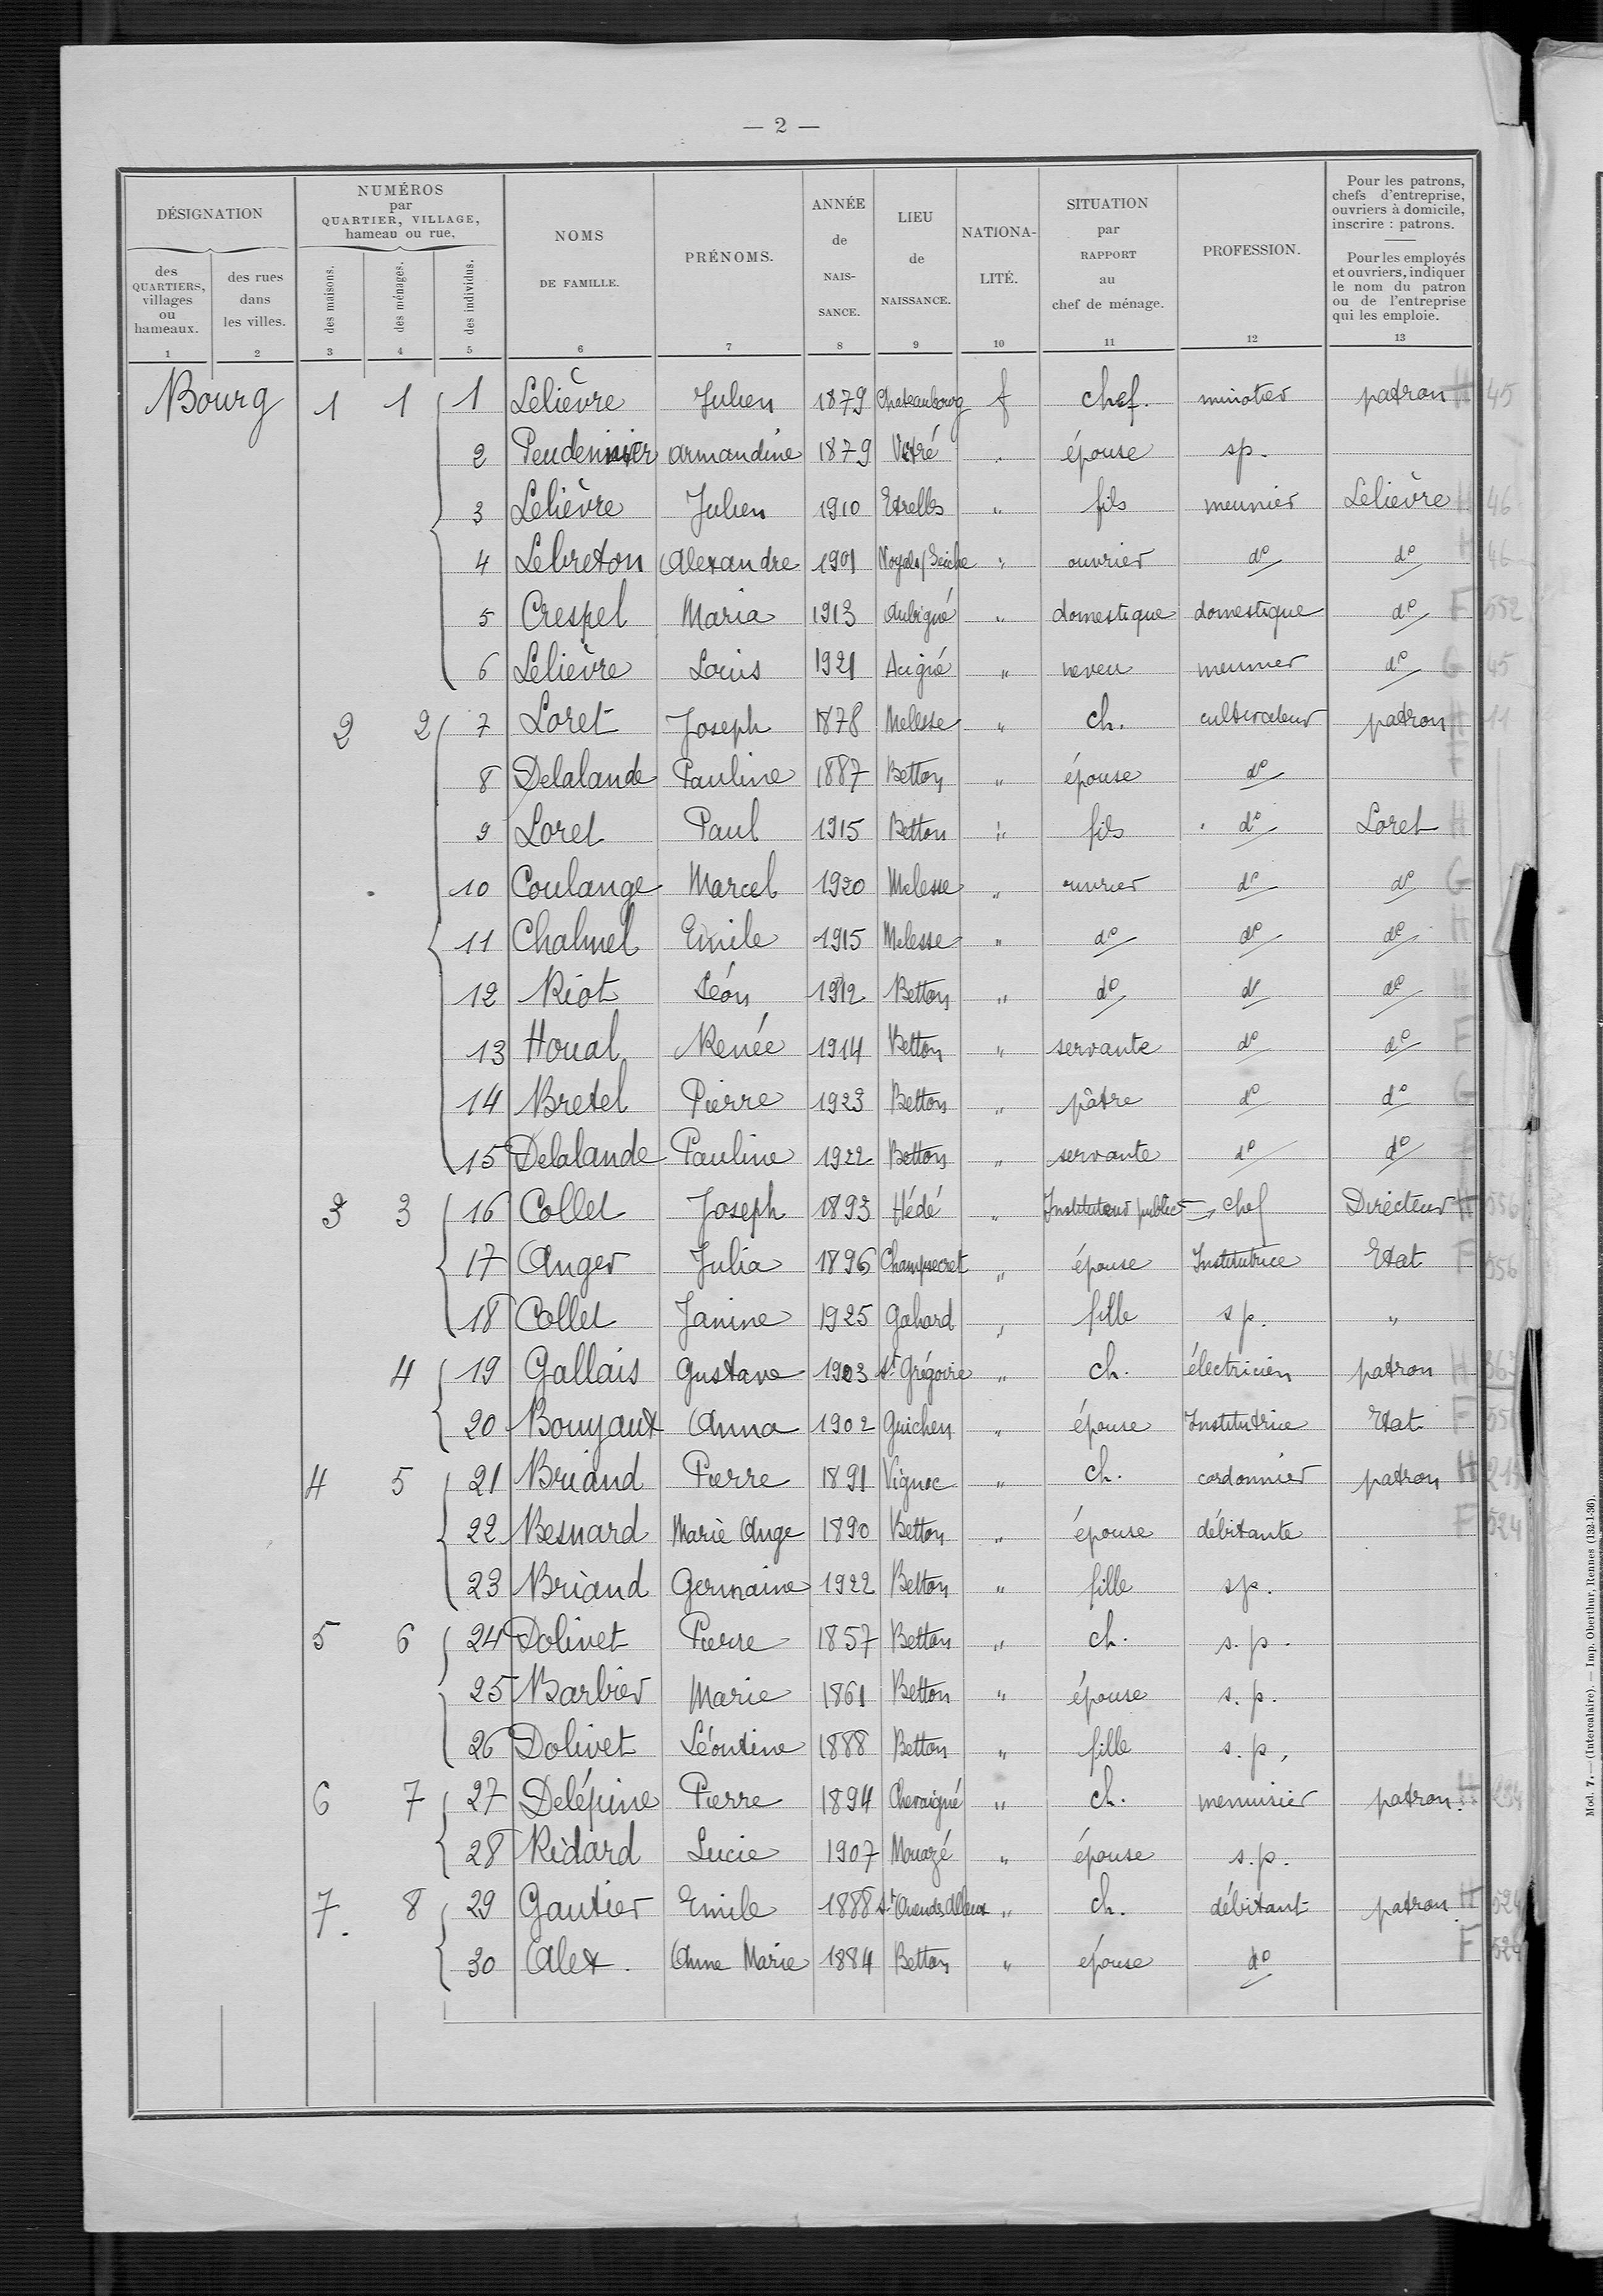 — 2 —
DÉSIGNATION
des QUARTIERS, villages ou hameaux.
des rues dans les villes.
NUMÉROS par QUARTIER, VILLAGE, hameau ou rue.
des maisons.
des ménages.
des individus.
NOMS DE FAMILLE.
PRÉNOMS.
ANNÉE de NAIS-SANCE.
LIEU de NAISSANCE.
NATIONA-LITÉ.
SITUATION par RAPPORT au chef de ménage.
PROFESSION.
Pour les patrons, chefs d'entreprise, ouvriers à domicile, inscrire : patrons.
Pour les employés et ouvriers, indiquer le nom du patron ou de l'entreprise qui les emploie.
1 2 3 4 5 6 7 8 9 10 11 12 13
Bourg 1 1 1 Lelièvre Julien 1879 Chateaubourg f chef. minotier patron H 45
2 armandine 1879 Vitré épouse sp.
3 Lelièvre Julien 1910 Etrelles " fils meunier Lelièvre H 46
4 Lebreton Alexandre 1901 Noyal s/ Seiche " ouvrier do do H 46
5 Crespel Maria 1913 Aubigné " domestique domestique do F 552
6 Lelièvre Louis 1921 Acigné " neveu meunier do G 45
2 2 7 Loret Joseph 1878 Melesse " ch. cultivateur patron H 11
8 Delalande Pauline 1887 Betton " épouse do F
9 Loret Paul 1915 Betton " fils do Loret H
10 Coulange Marcel 1920 Melesse " ouvrier do do G
11 Chalmel Emile 1915 Melesse " do do do H
12 Riot Léon 1912 Betton " do do do H
13 Houal Renée 1914 Betton " servante do do F
14 Bretel Pierre 1923 Betton " pâtre do do G
15 Delalande Pauline 1922 Betton " servante do do
3 3 16 Collet Joseph 1893 Hédé " Instituteur public chef Directeur H 556
17 Anger Julia 1896 Champsecret " épouse Institutrice Etat F 556
18 Collet Janine 1925 Gahard " fille sp. "
4 19 Gallais Gustave 1903 St Grégoire " ch. électricien patron H 363
20 Bouyaux Anna 1902 Guichen " épouse Institutrice Etat F
4 5 21 Briand Pierre 1891 Vignoc " ch. cordonnier patron H
22 Besnard Marie Ange 1890 Betton " épouse débitante F 524
23 Briand Germaine 1922 Betton " fille sp.
5 6 24 Dolivet Pierre 1857 Betton " ch. s.p.
25 Barbier Marie 1861 Betton " épouse s.p.
26 Dolivet Léontine 1888 Betton " fille s.p.
6 7 27 Delépine Pierre 1894 Chevaigné " ch. menuisier patron. H
28 Ridard Lucie 1907 Mouazé " épouse s.p.
7. 8 29 Gautier Emile 1888 St Ouen des Alleux " ch. débitant patron H 524
30 Alex. Anne Marie 1884 Betton " épouse do F 524
Mod. 7. — (Intercalaire). — Imp. Oberthur, Rennes (132-1-36).